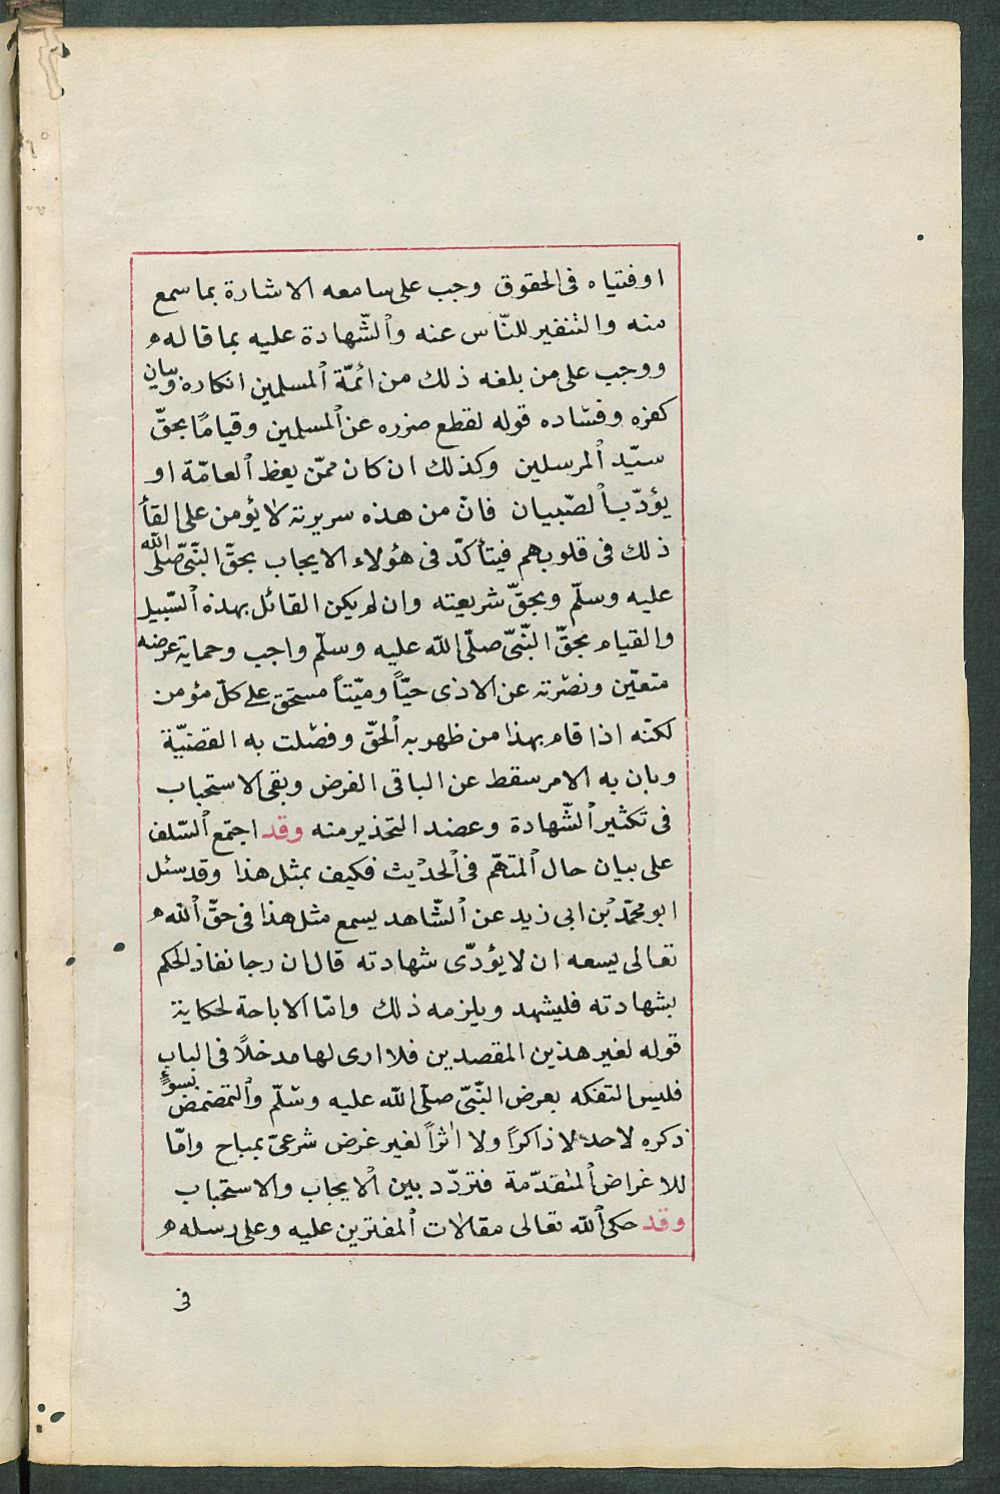 او فتياه فى الحقوق وجب على سامعه الاشارة بما سمع
منه والتنفير للنّاس عنه والشّهادة عليه بما قاله
ووجب على من بلغه ذلك من ائمّة المسلمين انكاره وبيان
كفره وفساده قوله لقطع ضرره عن المسلمين وقيامًا بحقّ
سيّد المرسلين وكذلك ان كان ممّن يعظ العامّة او
يؤدّب الصّبيان فانّ من هذه سريرته لا يؤمن على القأ
ذلك فى قلوبهم فيتأكّد فى هؤلاء الايجاب بحقّ النّبىّ صلّى الله
عليه وسلّم وبحقّ شريعته وان لم يكن القائل بهذه السّبيل
والقيام بحقّ النّبىّ صلّى الله عليه وسلّم واجب وحماية عرضه
متعيّن ونصرته عن الاذى حيّاً وميّتاً مستحق على كلّ مؤمن
لكنّه اذا قام بهذا من ظهر به الحقّ وفصلت به القضيّة
وبان به الامر سقط عن الباقى الفرض وبقى الاستحباب
فى تكثير الشّهادة وعضد التحذير منه وقد اجتمع السّلف
على بيان حال المتهّم فى الحديث فكيف بمثل هذا وقد سئل
ابو محمّد بن ابى زيد عن الشّاهد يسمع مثل هذا فى حقّ الله
تعالى يسعه ان لا يؤدّى شهادته قال ان رجا نفاذ الحكم
بشهادته فليشهد ويلزمه ذلك وامّا الاباحة لحكاية
قوله لغير هذين المقصدين فلا ارى لها مدخلاً فى الباب
فليس التفكه بعرض النّبىّ صلّى الله عليه وسّلّم والتمضمض بسوءٍ
ذكره لاحد لا ذاكراً ولا اٰثراً لغير غرض شرعىّ بمباح وامّا
للاغراض المتقدّمة فتردّد بين الايجاب والاستحباب
وقد حكى الله تعالى مقالات المفترين عليه وعلى رسله
فى